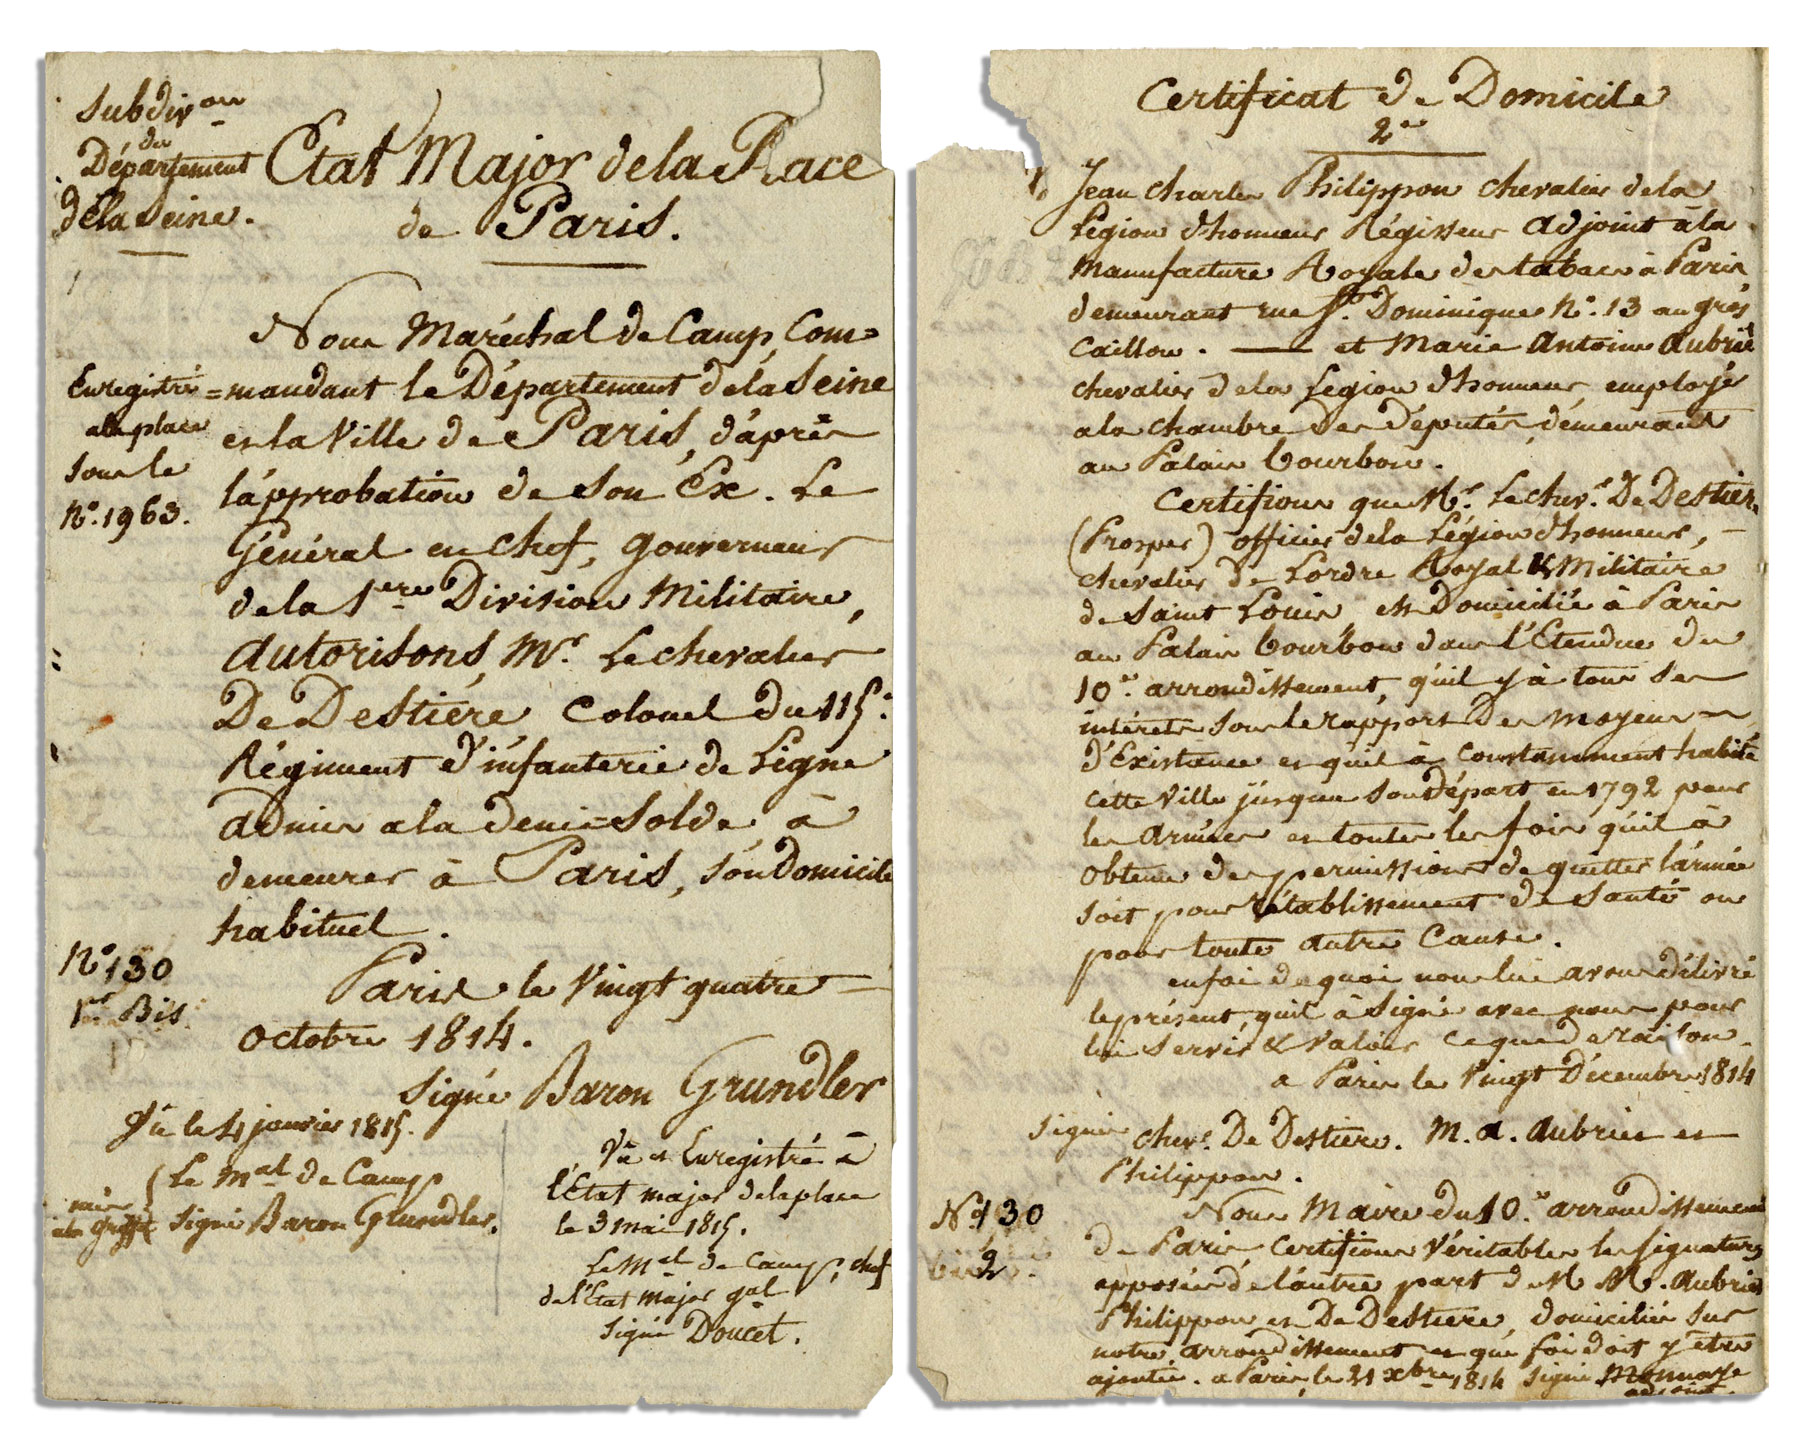 Subdivon
du
Département
de la Seine.
Etat Major de la Place
de Paris.
Nous Maréchal de Camp, Com=
=mandant le Département de la Seine
et la Ville de Paris, d'après
l'approbation de Son Ex. Le
Général en chef, Gouverneur
de la 1ere Division Militaire,
Autorisons, Mr. Le chevalier
De Destiére Colonel du 115e
Régiment d'infanterie de Ligne
admis a la demie=Solde à
demeurer à Paris, son Domicile
habituel.
Enregistré
a la place
sous le
No. 1963.
No 130
1er Bis
Paris le Vingt quatre
Octobre 1814.
Signé Baron Grundler
Vu le 4 janvier 1815.
Le Mal de Camp
signé Baron Grundler.
Vu et Enregistré à
l'Etat major de la place
le 3 mai 1815.
Le Mal de Camp, chef
de l'Etat Major gal
signé Doucet.
Certificat de Domicile
2e
Jean Charles Philippon chevalier de la
Légion d'honneur Régisseur adjoint a la
Manufacture Royale des tabacs à Paris
demeurant rue St. Dominique No. 13 au gros
Caillou. et Marie Antoine Aubriet
chevalier de la Légion d'honneur, employé
a la chambre des Députés, demeurant
au Palais Bourbon.
Certifions que Mr. Le chever. De Destiere
(Prosper) officier de la Légion d'honneur,
chevalier de Lordre Royal & Militaire
de Saint Louis est Domicilié à Paris
au Palais Bourbon dans l'Etendue du
10e arrondissement, qu'il y à tous ses
intérets sous le rapport des moyens
d'Existance et qu'il à constamment habité
cette Ville jusque son départ en 1792 pour
les armées et toutes les fois qu'il à
obtenu des permissions de quitter l'armée
soit pour rétablissement de santé ou
pour toute autre Cause.
en foi de quoi nous lui avons délivré
le présent, qu'il à signé avec nous pour
lui servir & valoir ce que de raison.
a Paris le Vingt Décembre 1814
Signé chever. De Destiere. M. A. Aubriet et
Philippon.
No 130
2
Nous Maire du 10e arrondissement
de Paris, certifions Véritables les signatures
apposées de l'autre part de M M. Aubriet
Philippon et De Destiere, domiciliés sur
notre arrondissement et que foi doit y être
ajoutée. a Paris, le 21 xbre 1814 Signé
adjoint.